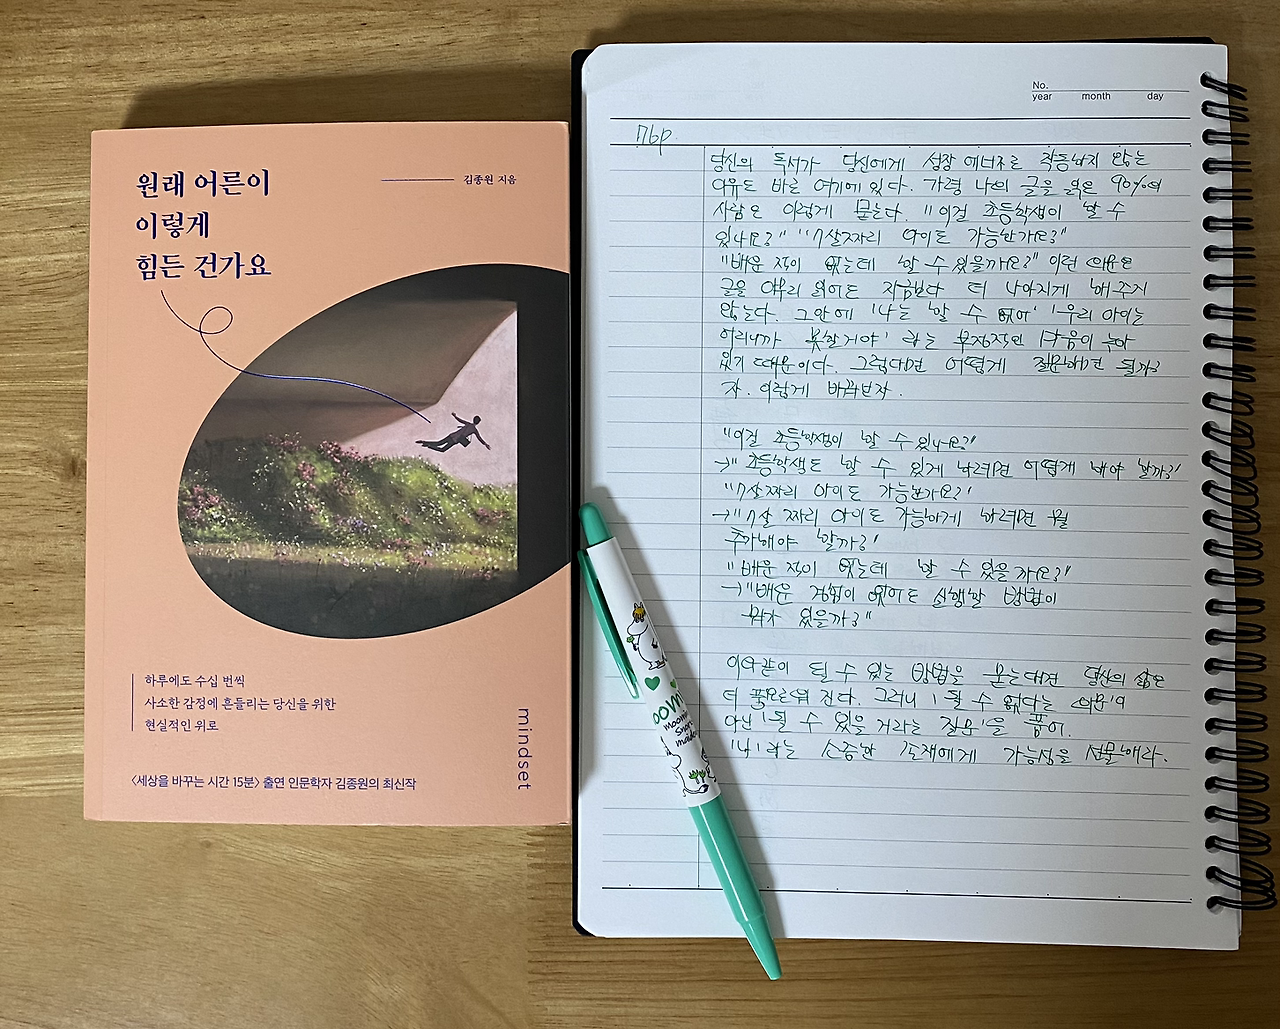 원래 어른이
이렇게
힘든 건가요
김종원 지음
하루에도 수십 번씩
사소한 감정에 흔들리는 당신을 위한
현실적인 위로
mindset
<세상을 바꾸는 시간 15분> 출연 인문학자 김종원의 최신작
No.
year month day
76p.
당신의 독서가 당신에게 성장 에너지로 작동하지 않는
이유도 바로 여기에 있다. 가령 나의 글을 읽은 90%의
사람은 이렇게 묻는다. "이걸 초등학생이 할 수
있나요?" "7살짜리 아이도 가능한가요?"
"배운 적이 없는데 할 수 있을까요?" 이런 의문은
글을 아무리 읽어도 지금보다 더 나아지게 해주지
않는다. 그 안에 '나는 할 수 없어' '우리 아이는
어리니까 못할거야' 라는 부정적인 마음이 녹아
있기 때문이다. 그렇다면 어떻게 질문해면 될까?
자. 이렇게 바꿔보자.
"이걸 초등학생이 할 수 있나요?"
→"초등학생도 할 수 있게 하려면 어떻게 해야 할까?"
"7살짜리 아이도 가능한가요?"
→"7살 짜리 아이도 가능하게 하려면 뭘
추가해야 할까?"
"배운 적이 없는데 할 수 있을까요?"
→"배운 경험이 없어도 실행할 방법이
뭐가 있을까?"
이와같이 될 수 있는 방법을 묻는다면 일상의 삶은
더 풍요로워 진다. 그러니 '될 수 없다는 의문'이
아닌 '될 수 있을 거라는 질문'을 품어.
'나'라는 소중한 존재에게 가능성을 선물해라.
moomin
Snork
maiden